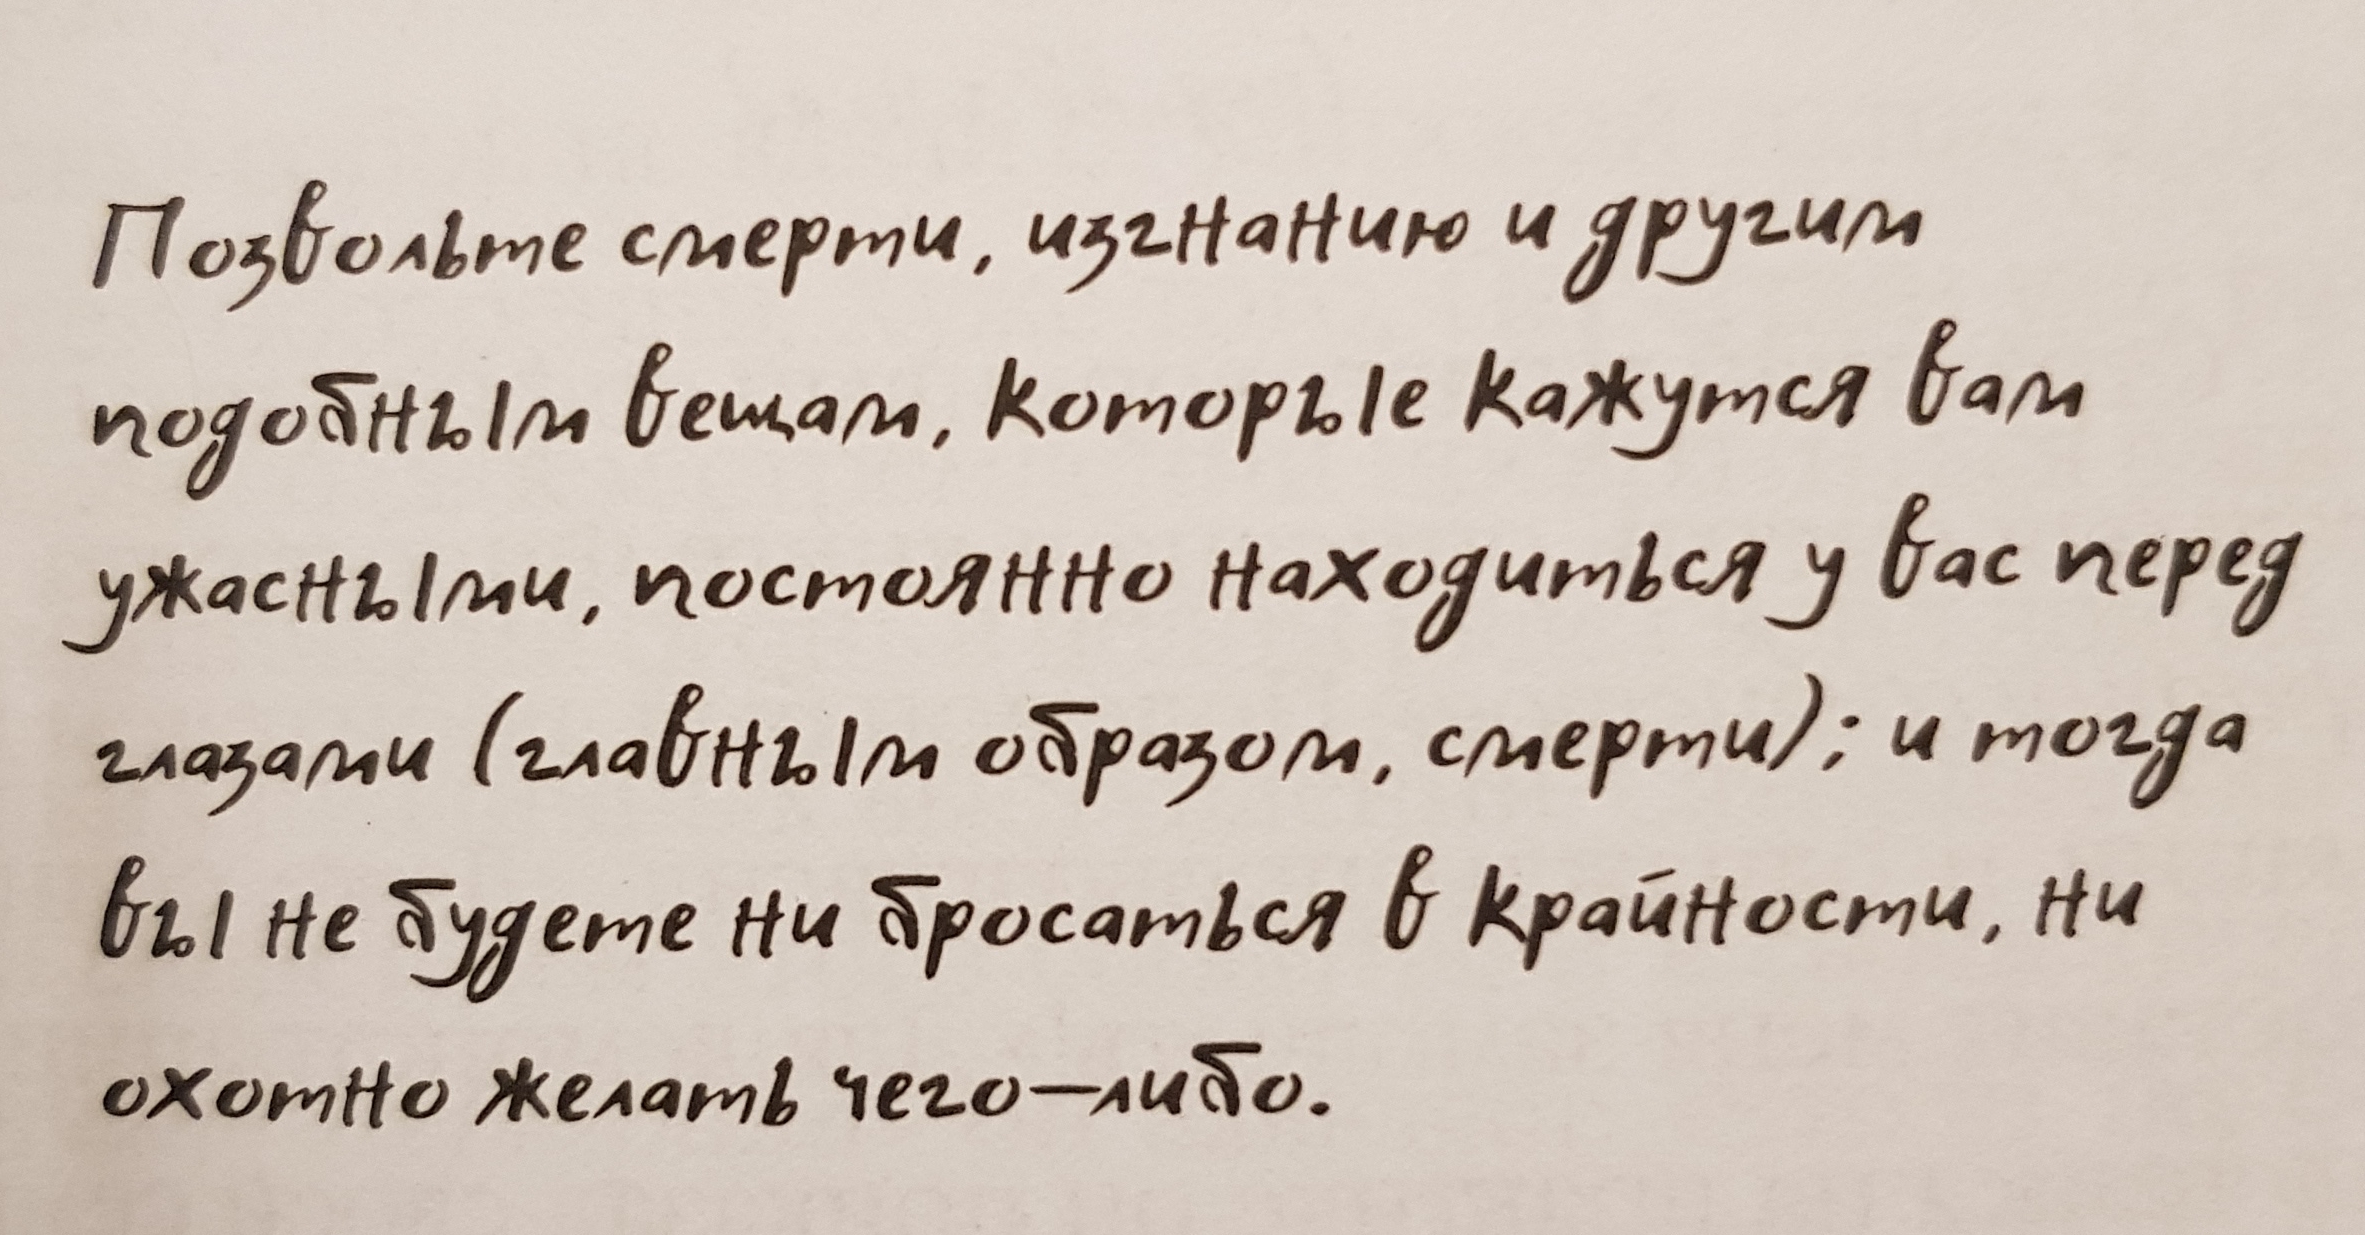 Позвольте смерти, изгнанию и другим
подобным вещам, которые кажутся вам
ужасными, постоянно находиться у вас перед
глазами (главным образом, смерти); и тогда
вы не будете ни бросаться в крайности, ни
охотно желать чего-либо.